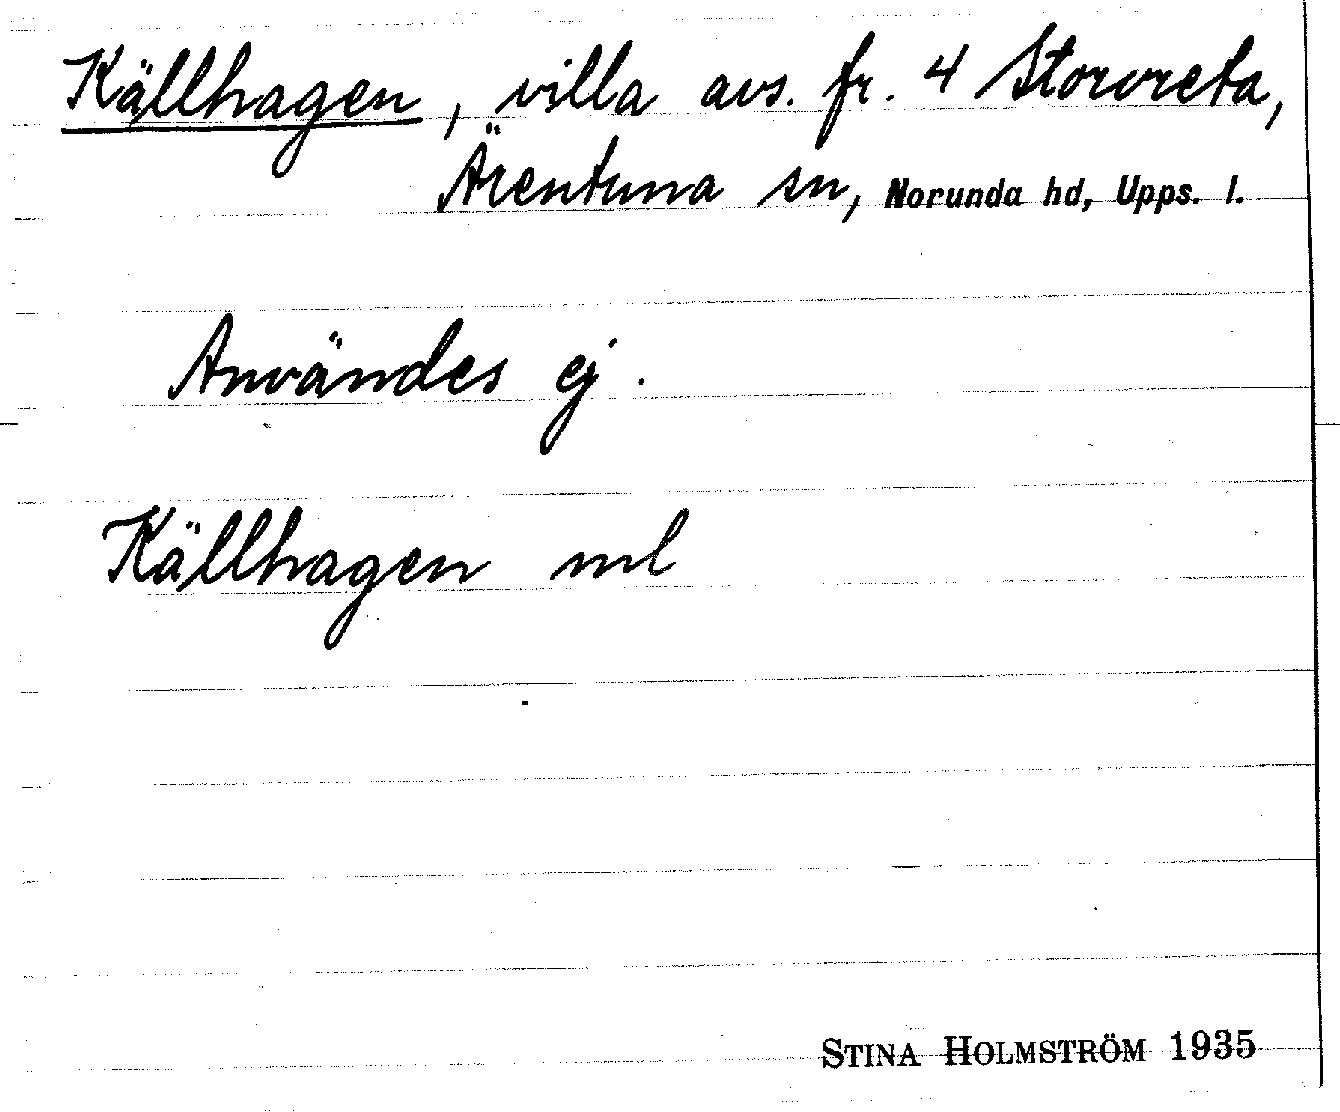 Källhagen, villa avs. fr. 4 Storvreta,
Ärentuna sn, Norunda hd, Upps. l.
Användes ej.
Källhagen ml
STINA HOLMSTRÖM 1935